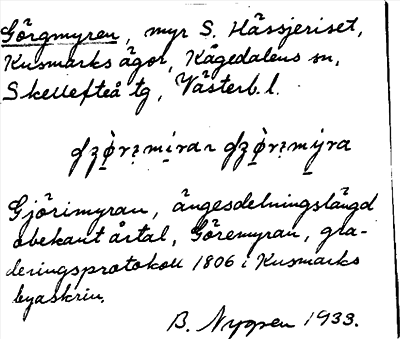 Görgmyren, myr S. Hässjeriset,
Kusmarks ägor, Kågedalens sn,
Skellefteå tg, Västerb. l.
Gjörimyran, ängesdelningslängd
obekant årtal, Göremyran, gra-
deringsprotokoll 1806 i Kusmarks
byaskrin.
B. Nygren 1933.